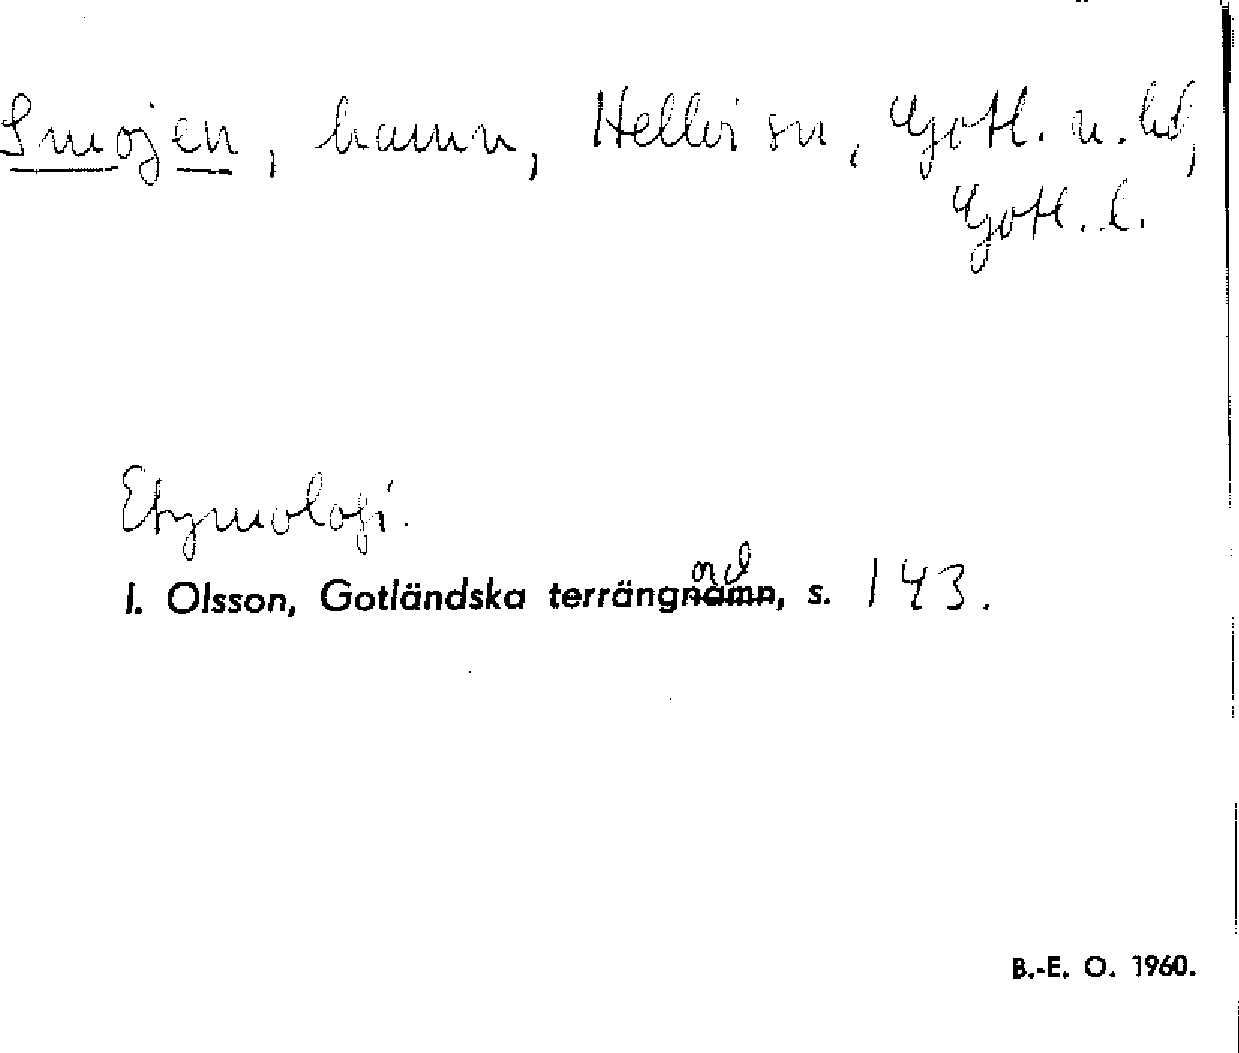 Smojen, hamn, Hellvi sn, Gotl. n. hd,
Gotl. l.
Etymologi.
I. Olsson, Gotländska terrängord, s. 143.
B.-E. O. 1960.